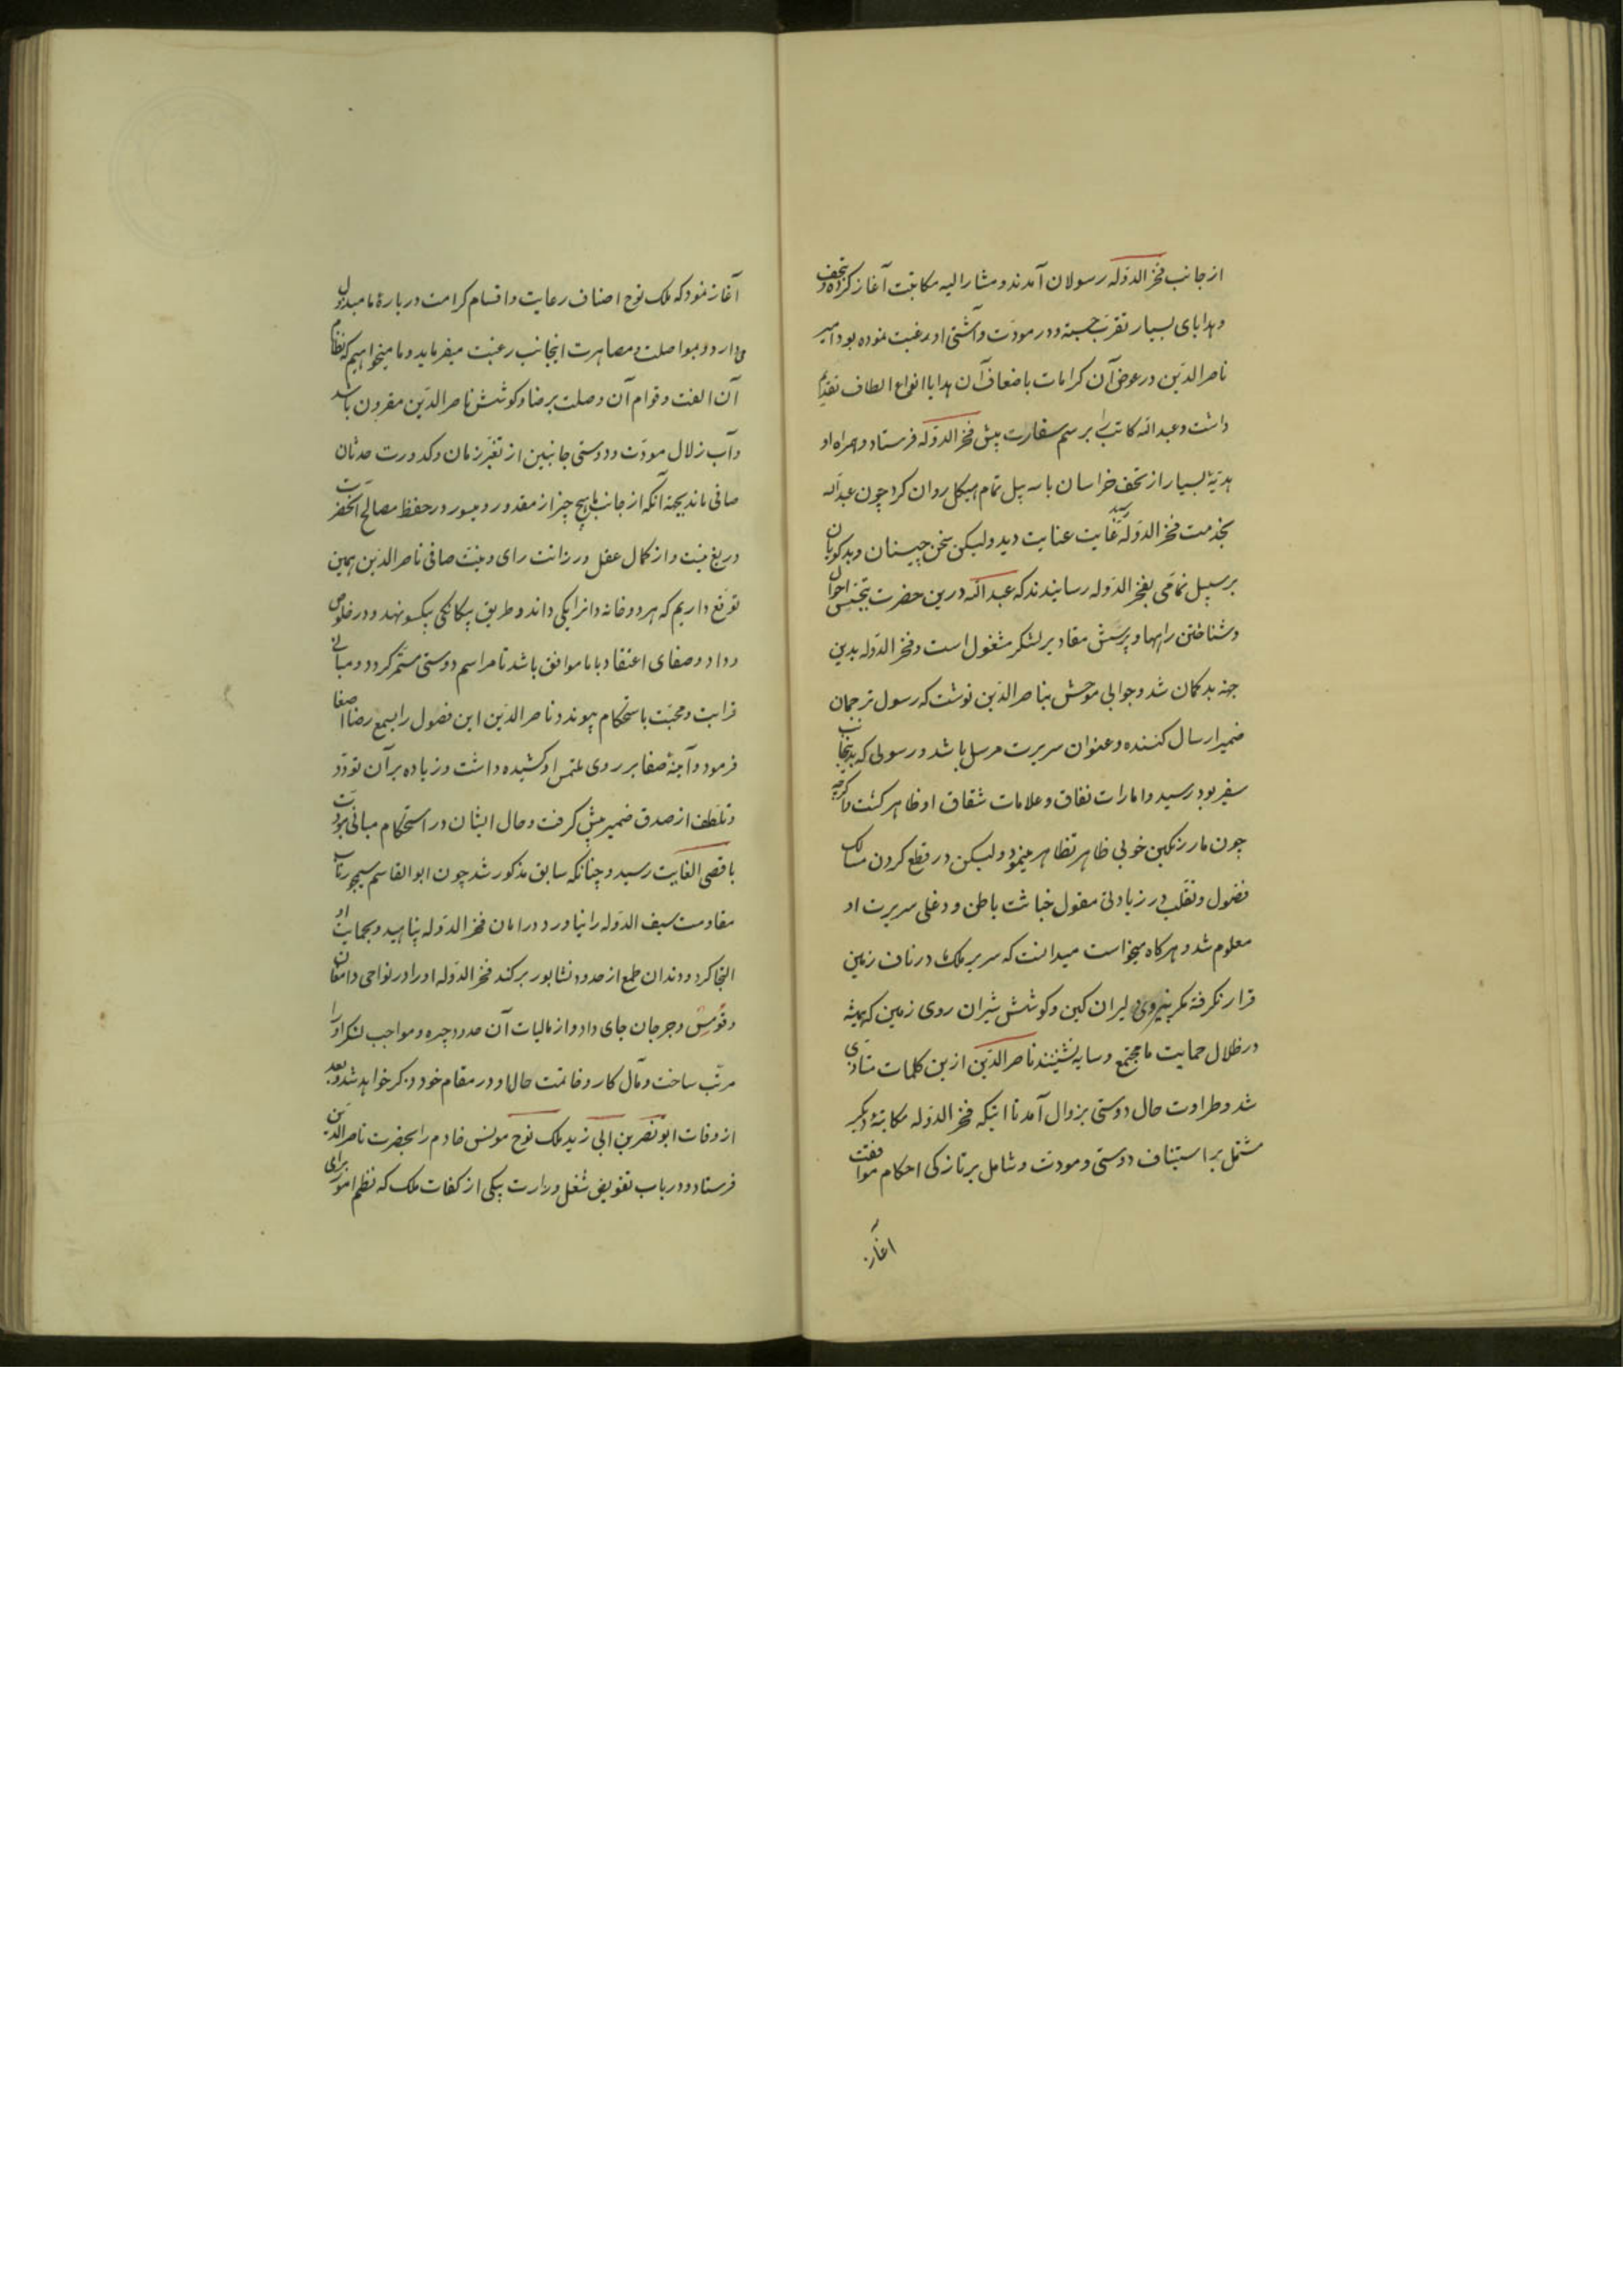 از جانب فخر الدوله رسولان آمدند و مشار الیه مکاتبت آغاز کرده و بتحف
و هدایای بسیار تقرب جسته و در مودت و آشتی او رغبت نموده بود امیر
ناصر الدین در عوض آن کرامات باضعاف آن هدایا انواع الطاف تقدیم
داشت و عبد الله کاتب را برسم سفارت پیش فخر الدوله فرستاد و همراه او
هدیهٔ بسیار از تحف خراسان با سه پیل تمام هیکل روان کرد چون عبد الله
بخدمت فخر الدوله رسید غایت عنایت دید ولیکن سخن چینان و بدکویان
برسبیل نمامی بفخر الدوله رسانیدند که عبد الله درین حضرت بتجسس احوال
و شناختن راهها و پرسش مقادیر لشکر مشغول است و فخر الدوله بدین
جهة بدکمان شد و جوابی موحش بناصر الدین نوشت که رسول ترجمان
ضمیر ارسال کننده و عنوان سریرت مرسل باشد و رسولی که بدینجانب
سفیر بود رسید و امارات نفاق و علامات شقاق او ظاهر کشت و اکرچه
چون مار رنکین خوبی ظاهر تظاهر مینمود ولیکن در قطع کردن مسالک
فضول و تقلب در زیادتی مقول خباثت باطن و دغلی سریرت او
معلوم شد و هرکاه میخواست میدانست که سریر ملک ما در ناف زمین
قرار نکرفته مکر بنیروی دلیران کین و کوشش شیران روی زمین که همیشه
در ظلال حمایت ما مجتمع و سایه نشینند ناصر الدین ازین کلمات متاذی
شد و طراوت حال دوستی بزوال آمد تا اینکه فخر الدوله مکاتبهٔ دیکر
مشتمل بر استیناف دوستی و مودت و شامل بر تازکی احکام موافقت
آغاز
آغاز نمود که ملک نوح اصناف رعایت و اقسام کرامت دربارهٔ ما مبذول
میدارد و بمواصلت و مصاهرت اینجانب رغبت میفرماید و ما میخواهیم که نظام
آن الفت و قوام آن وصلت برضا و کوشش ناصر الدین مقرون باشد
و آب زلال مودت و دوستی جانبین از تغیر زمان و کدورت حدثان
صافی ماند بجهة آنکه از جانب ما هیچ چیز از مقدور و میسور در حفظ مصالح آنحضرت
دریغ نیست و از کمال عقل و رزانت رای و نیت صافی ناصر الدین همین
توقع داریم که هر دو خانه دانرا یکی داند و طریق بیکانکی بیکسو نهد و در خلوص
وداد و صفای اعتقاد با ما موافق باشد تا مراسم دوستی مستمر کردد و مبانی
قرابت و محبت باستحکام پیوندد ناصر الدین این فصول را بسمع رضا اصغا
فرمود و آینهٔ صفا بر روی ملتمس او کشیده داشت و زیاده بر آن تودد
و تلطف از صدق ضمیر پیش کرفت و حال ایشان در استحکام مبانی مودت
باقصی الغایت رسید و چنانکه سابق مذکور شد چون ابو القاسم سیمجور تاب
مقاومت سیف الدوله را نیاورد و در امان فخر الدوله پناهید و بحمایت او
التجا کرد و دندان طمع از حدود نشابور برکند فخر الدوله او را در نواحی دامغان
و قومس و جرجان جای داد و از مالیات آن حدود جیره و مواجب لشکر او را
مرتب ساخت و مآل کار و خاتمت حال او در مقام خود ذکر خواهد شد و بعد
از وفات ابو نصر بن ابی زید ملک نوح مونس خادم را بحضرت ناصر الدین
فرستاد و در باب تفویض شغل وزارت بیکی از کفات ملک که نظم امور برای